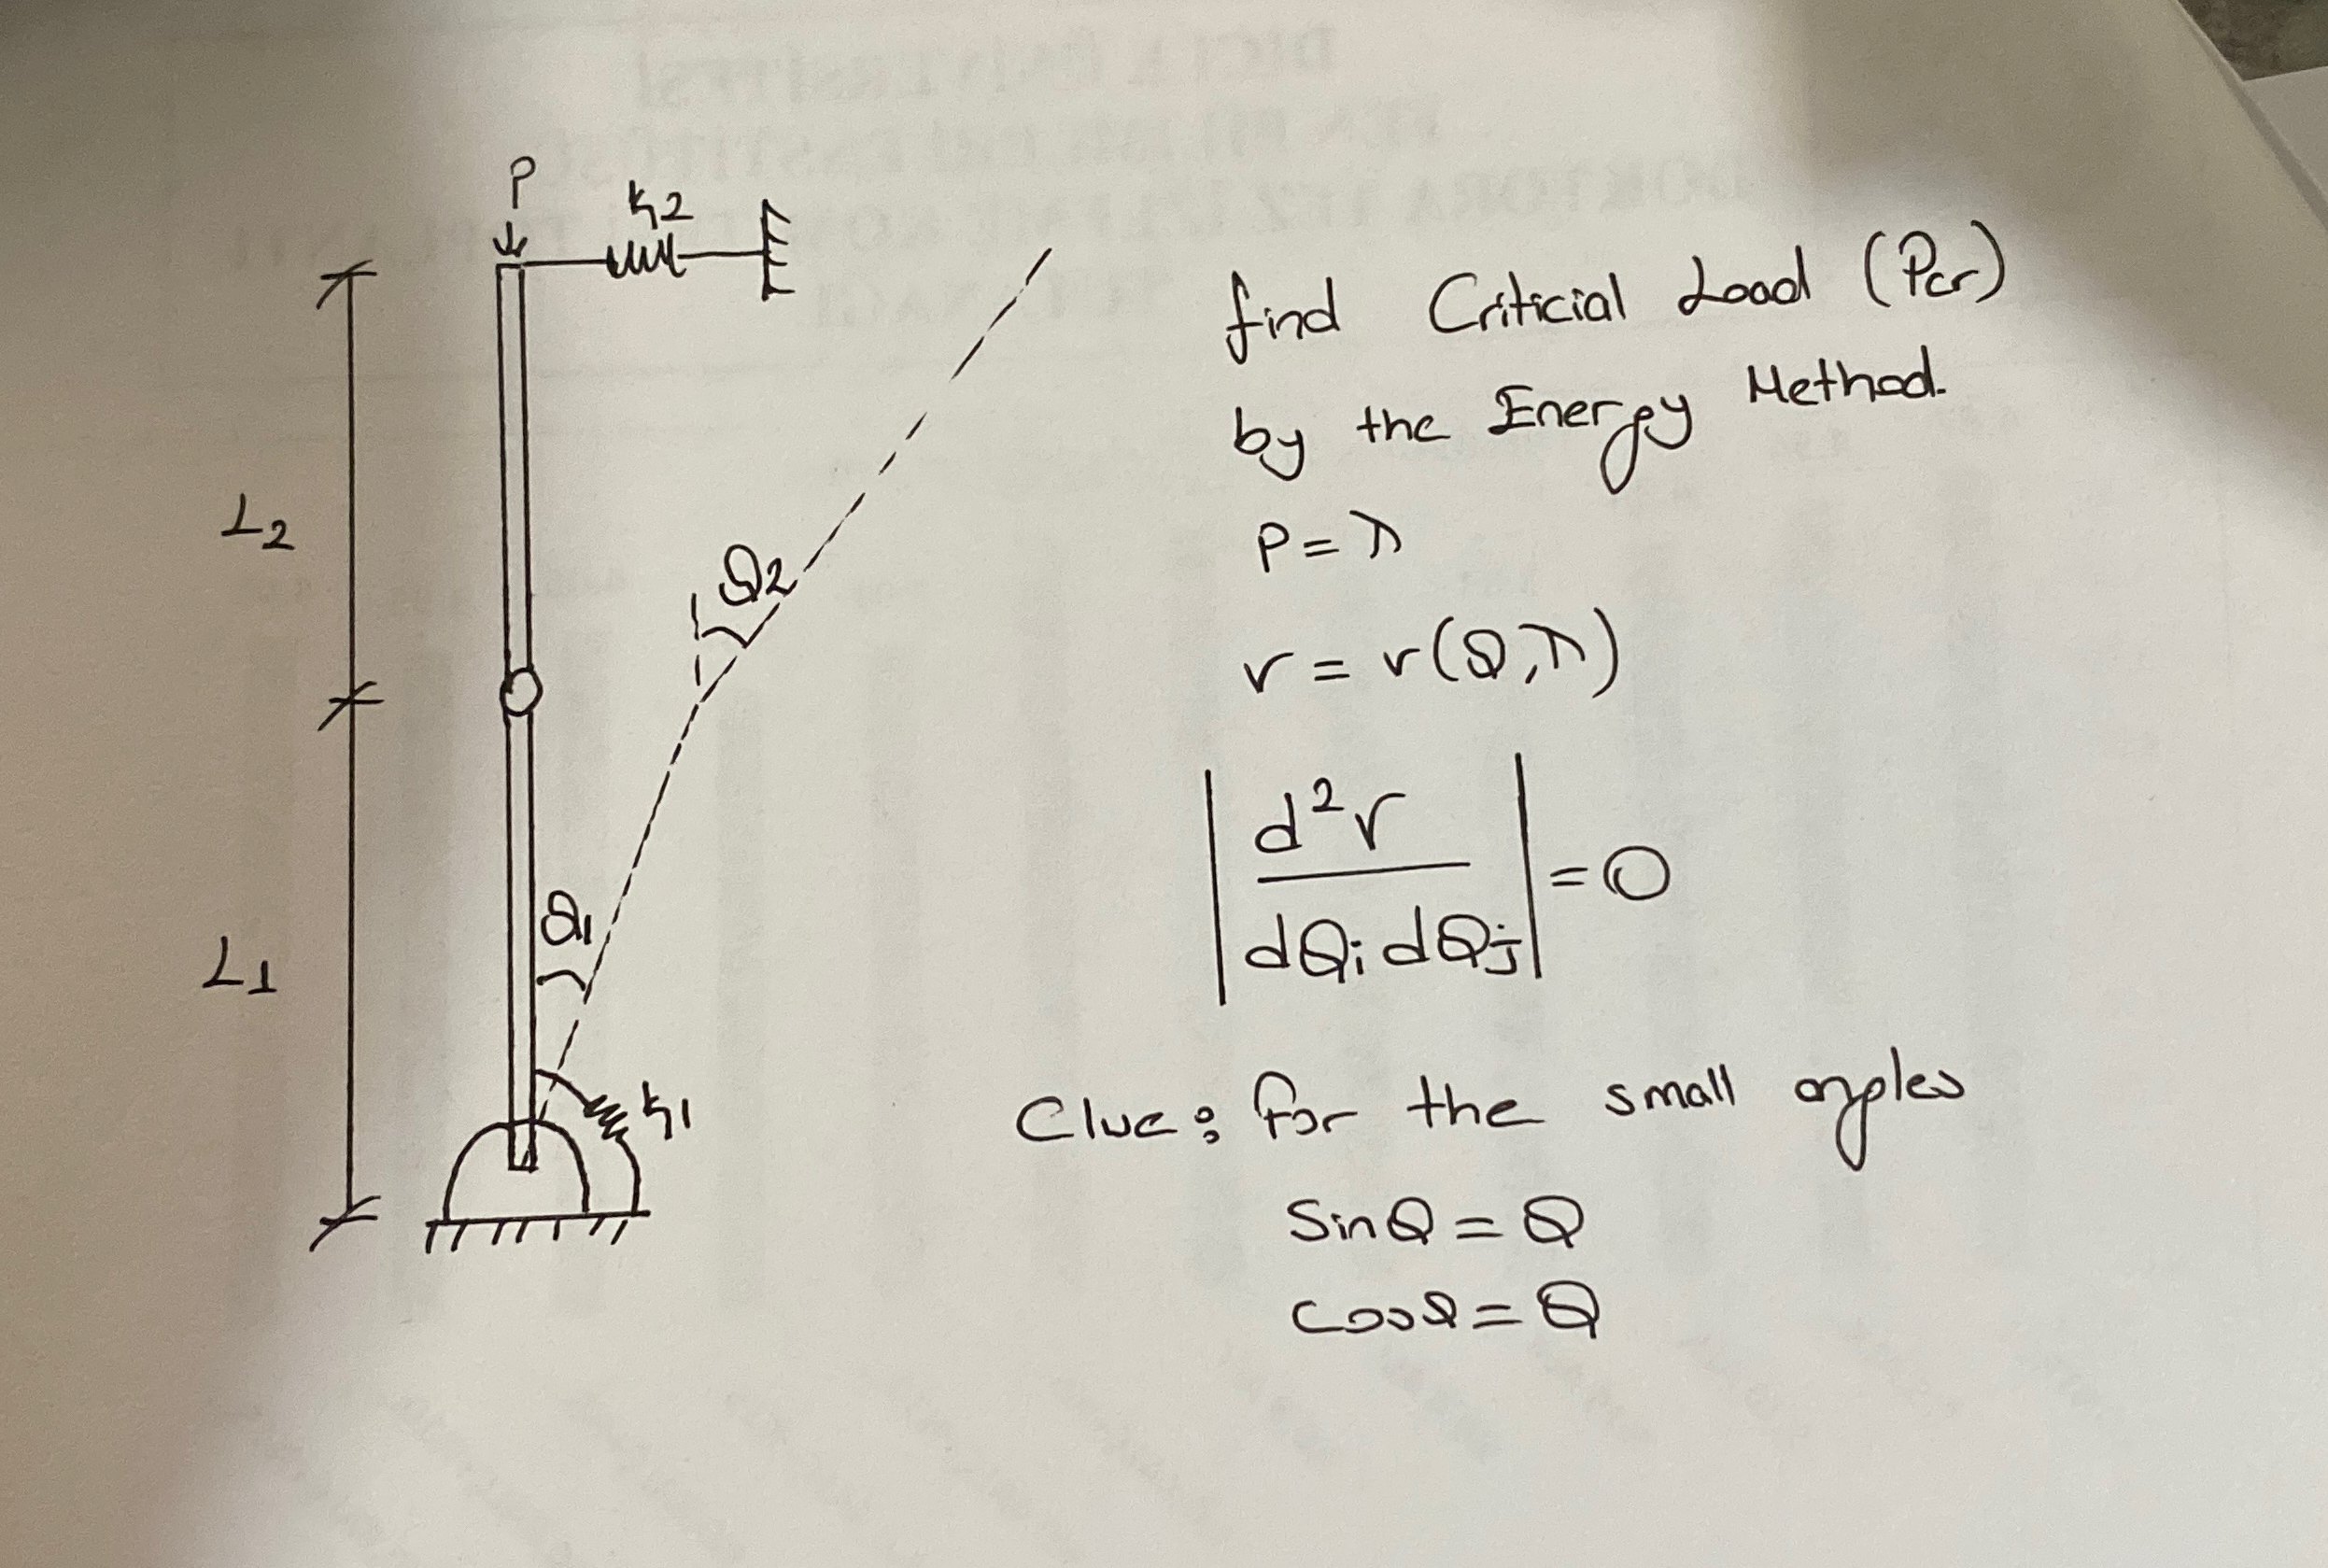 P
k2
L2
Q2
L1
Q1
k1
find Criticial Load (Pcr)
by the Energy Method.
P = λ
r = r(Q,λ)
| d²r / dQi dQj | = 0
Clue: for the small angles
SinQ = Q
CosQ = Q